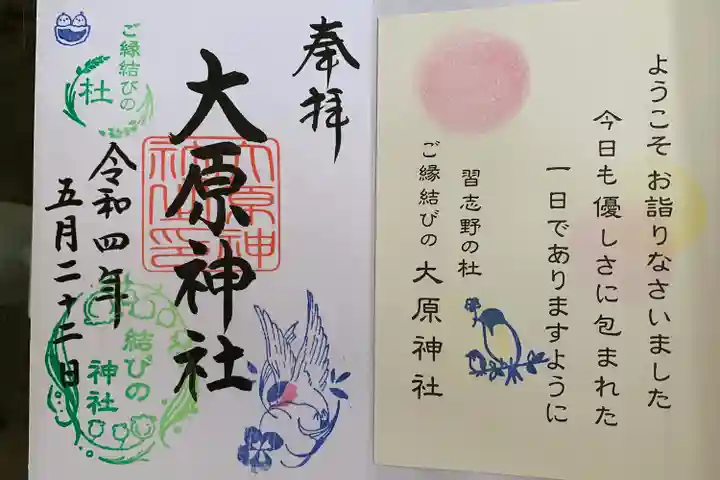 ようこそ お詣りなさいました
今日も 優しさに包まれた
一日でありますように
習志野の杜
ご縁結びの 大原神社
奉拝
大原神社
大原神
社之印
令和四年
五月二十二日
ご縁結びの
杜
結びの
神社